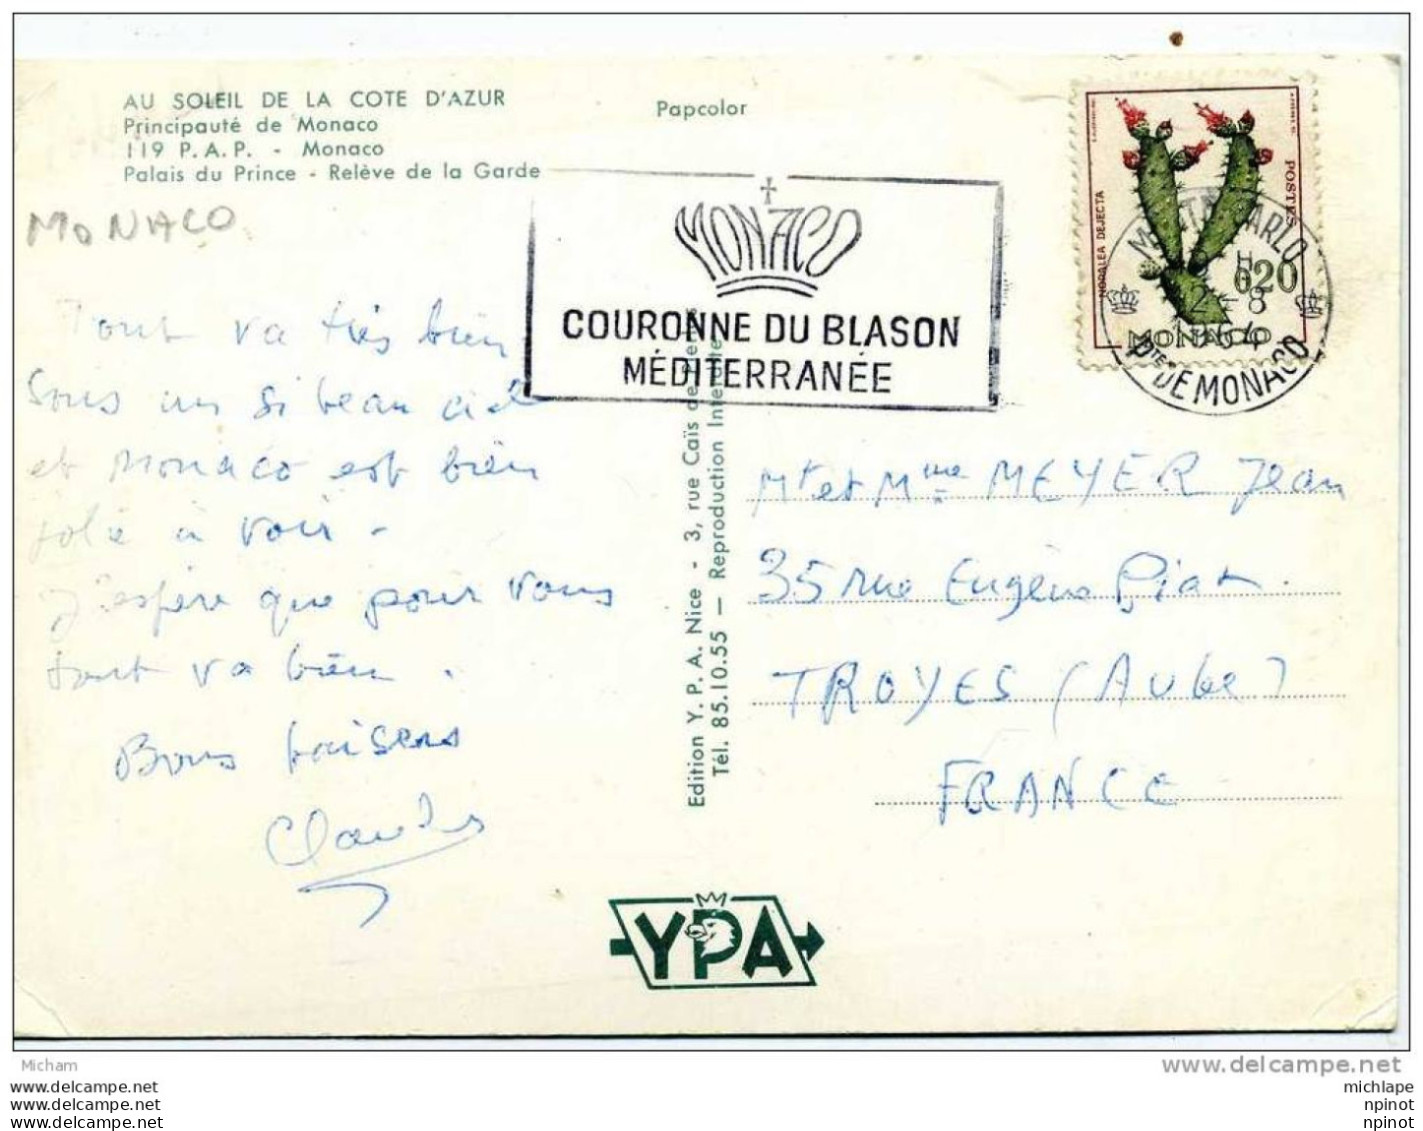 AU SOLEIL DE LA COTE D'AZUR
Principauté de Monaco
119 P.A.P. - Monaco
Palais du Prince - Relève de la Garde
Papcolor
MONACO
MONACO
COURONNE DU BLASON
MÉDITERRANÉE
NOPALEA DEJECTA
POSTES
0,20
MONACO
MONTE-CARLO
2-8
1964
Pte DE MONACO
Tout va très bien
sous un si beau ciel
et Monaco est bien
jolie à voir -
J'espère que pour vous
tout va bien.
Bons baisers
Edition Y. P. A. Nice - 3, rue Caïs de Pierlas
Tél. 85.10.55 — Reproduction Interdite
Mr et Mme MEYER Jean
35 rue Eugène Piat
TROYES (Aube)
FRANCE
YPA
Micham
www.delcampe.net
www.delcampe.net
www.delcampe.net
www.delcampe.net
michlape
npinot
npinot